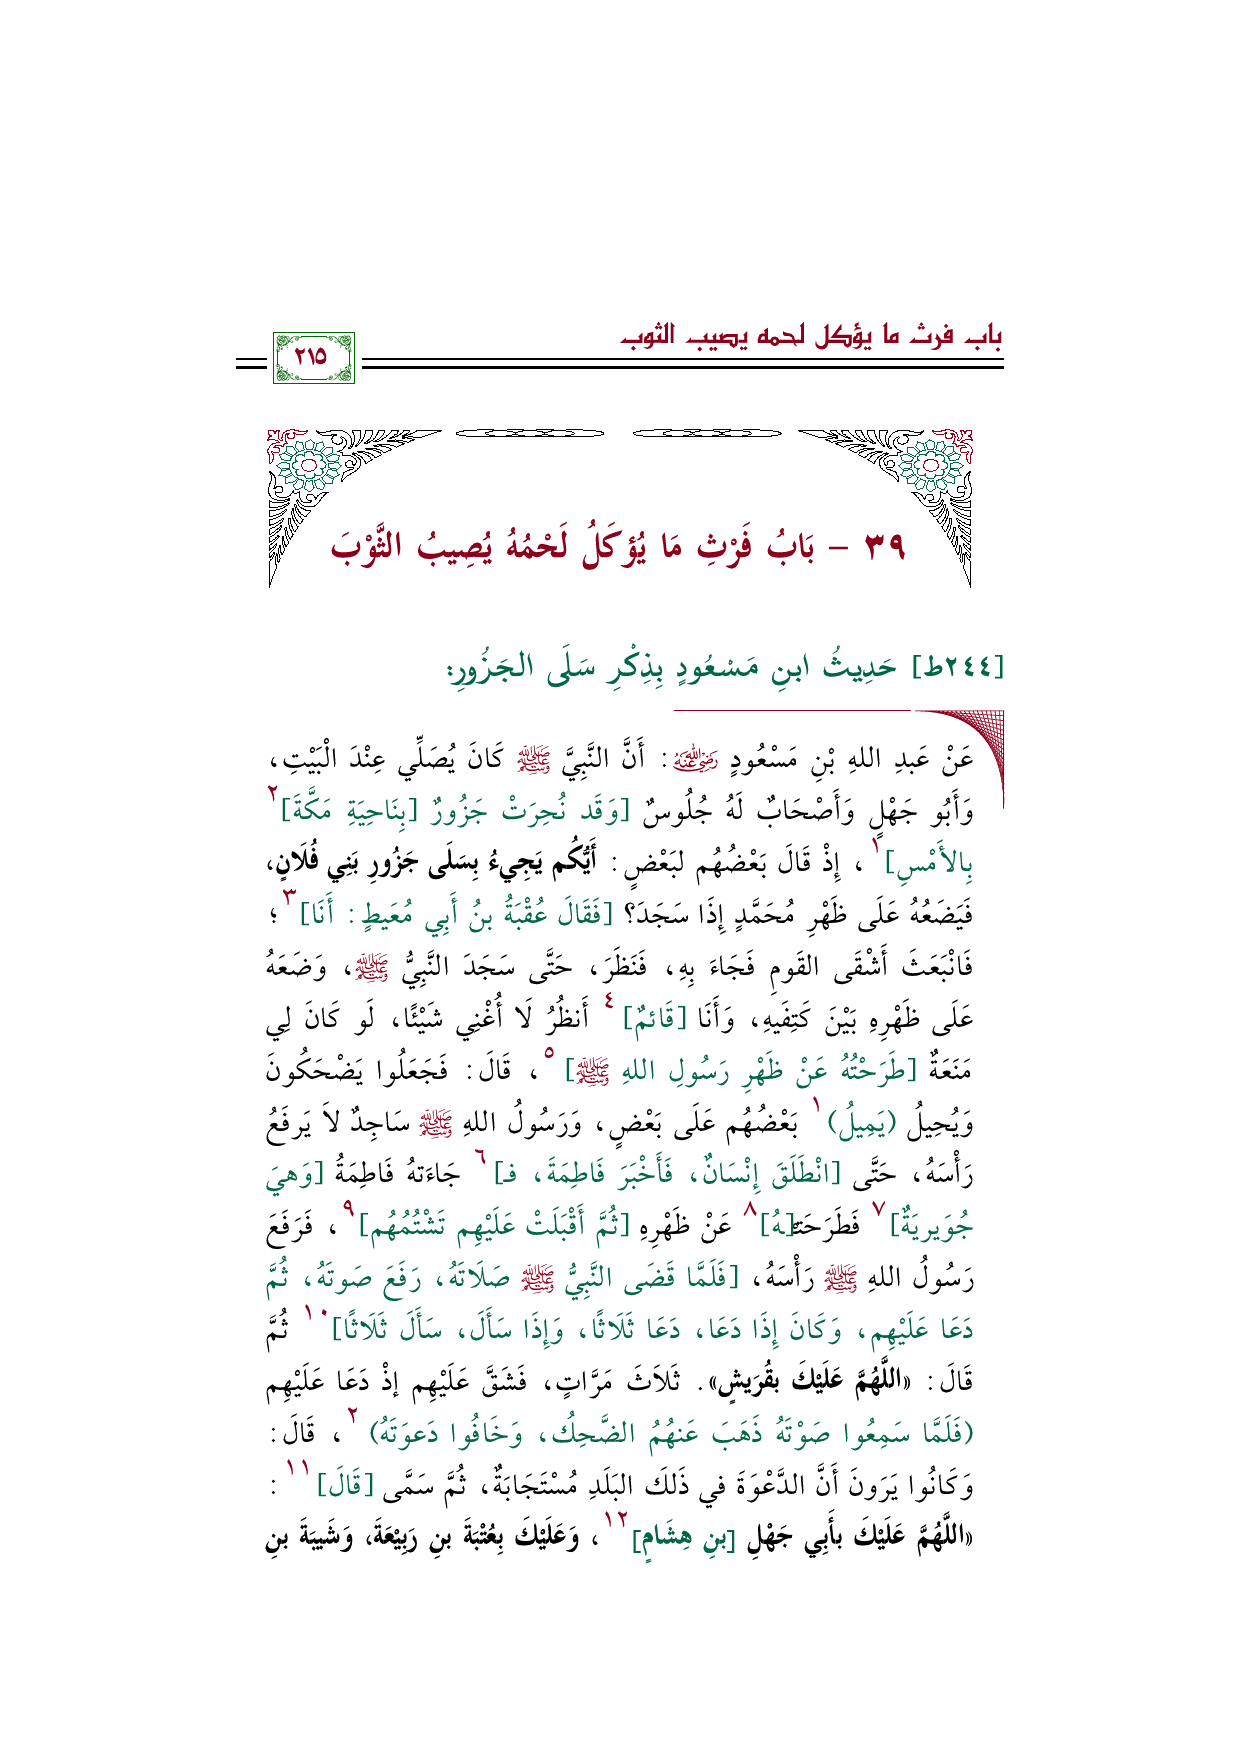 باب فرث ما يؤكل لحمه يصيب الثوب
٢١٥
٣٩ - بَابُ فَرْثِ مَا يُؤكَلُ لَحْمُهُ يُصِيبُ الثَّوْبَ
[٢٤٤ط] حَدِيثُ ابنِ مَسْعُودٍ بِذِكْرِ سَلَى الجَزُورِ:
عَنْ عَبدِ اللهِ بْنِ مَسْعُودٍ رضي الله عنه: أَنَّ النَّبِيَّ ﷺ كَانَ يُصَلِّي عِنْدَ الْبَيْتِ،
وَأَبُو جَهْلٍ وَأَصْحَابٌ لَهُ جُلُوسٌ [وَقَد نُحِرَتْ جَزُورٌ [بِنَاحِيَةِ مَكَّةَ]٢
بِالأَمْسِ]١، إِذْ قَالَ بَعْضُهُم لبَعْضٍ: أَيُّكُم يَجِيءُ بِسَلَى جَزُورِ بَنِي فُلَانٍ،
فَيَضَعُهُ عَلَى ظَهْرِ مُحَمَّدٍ إِذَا سَجَدَ؟ [فَقَالَ عُقْبَةُ بنُ أَبِي مُعَيطٍ: أَنَا]٣؛
فَانْبَعَثَ أَشْقَى القَومِ فَجَاءَ بِهِ، فَنَظَرَ، حَتَّى سَجَدَ النَّبِيُّ ﷺ، وَضَعَهُ
عَلَى ظَهْرِهِ بَيْنَ كَتِفَيهِ، وَأَنَا [قَائمٌ]٤ أَنظُرُ لَا أُغْنِي شَيْئًا، لَو كَانَ لِي
مَنَعَةٌ [طَرَحْتُهُ عَنْ ظَهْرِ رَسُولِ اللهِ ﷺ]٥، قَالَ: فَجَعَلُوا يَضْحَكُونَ
وَيُحِيلُ (يَمِيلُ)١ بَعْضُهُم عَلَى بَعْضٍ، وَرَسُولُ اللهِ ﷺ سَاجِدٌ لاَ يَرفَعُ
رَأْسَهُ، حَتَّى [انْطَلَقَ إِنْسَانٌ، فَأَخْبَرَ فَاطِمَةَ، فـ]٦ جَاءَتهُ فَاطِمَةُ [وَهيَ
جُوَيريَةٌ]٧ فَطَرَحَتـ[ـهُ]٨ عَنْ ظَهْرِهِ [ثُمَّ أَقْبَلَتْ عَلَيْهِم تَشْتُمُهُم]٩، فَرَفَعَ
رَسُولُ اللهِ ﷺ رَأْسَهُ، [فَلَمَّا قَضَى النَّبِيُّ ﷺ صَلَاتَهُ، رَفَعَ صَوتَهُ، ثُمَّ
دَعَا عَلَيْهِم، وَكَانَ إِذَا دَعَا، دَعَا ثَلَاثًا، وَإِذَا سَأَلَ، سَأَلَ ثَلَاثًا]١٠ ثُمَّ
قَالَ: «اللَّهُمَّ عَلَيْكَ بقُرَيشٍ». ثَلَاثَ مَرَّاتٍ، فَشَقَّ عَلَيْهِم إذْ دَعَا عَلَيْهِم
(فَلَمَّا سَمِعُوا صَوْتَهُ ذَهَبَ عَنهُمُ الضَّحِكُ، وَخَافُوا دَعوَتَهُ)٢، قَالَ:
وَكَانُوا يَرَونَ أَنَّ الدَّعْوَةَ في ذَلكَ البَلَدِ مُسْتَجَابَةٌ، ثُمَّ سَمَّى [قَالَ]١١:
«اللَّهُمَّ عَلَيْكَ بأَبِي جَهْلِ [بنِ هِشَامٍ]١٢، وَعَلَيْكَ بِعُتْبَةَ بنِ رَبِيْعَةَ، وَشَيبَةَ بنِ